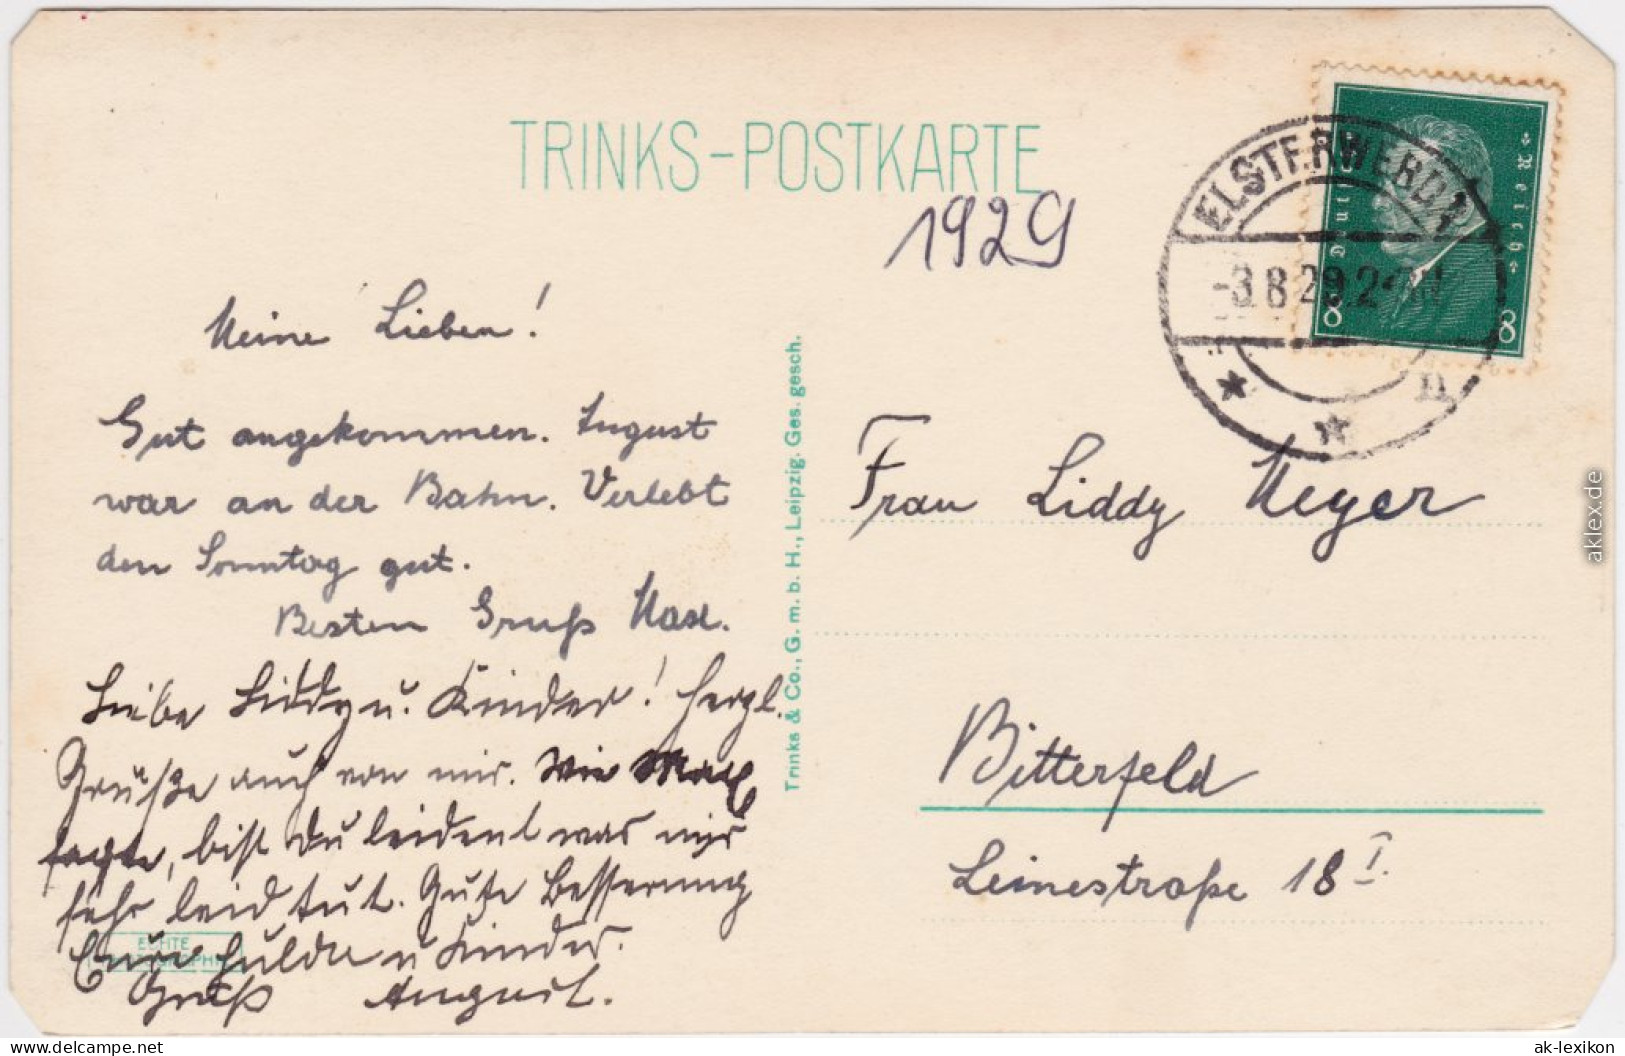 TRINKS-POSTKARTE
1929
ELSTERWERDA
-3.8.29.2-3N
Deutsches Reich
8 8
Meine Lieben!
Gut angekommen. August
war an der Bahn. Verlebt
den Sonntag gut.
Besten Gruß Max.
Liebe Liddy u. Kinder! Herzl.
Grüße auch von mir. Wie Max
sagte, bist Du leidend was mir
sehr leid tut. Gute Besserung
Eure Hulda u Kinder.
Gruß August.
ECHTE
Trinks & Co., G. m. b. H., Leipzig. Ges. gesch.
Frau Liddy Meyer
Bitterfeld
Leinestraße 18 I.
aklex.de
www.delcampe.net
ak-lexikon